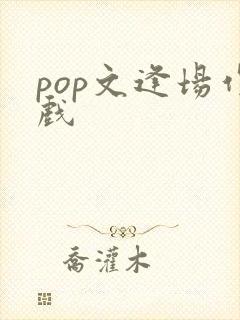 pop文逢場作
戲
喬灌木